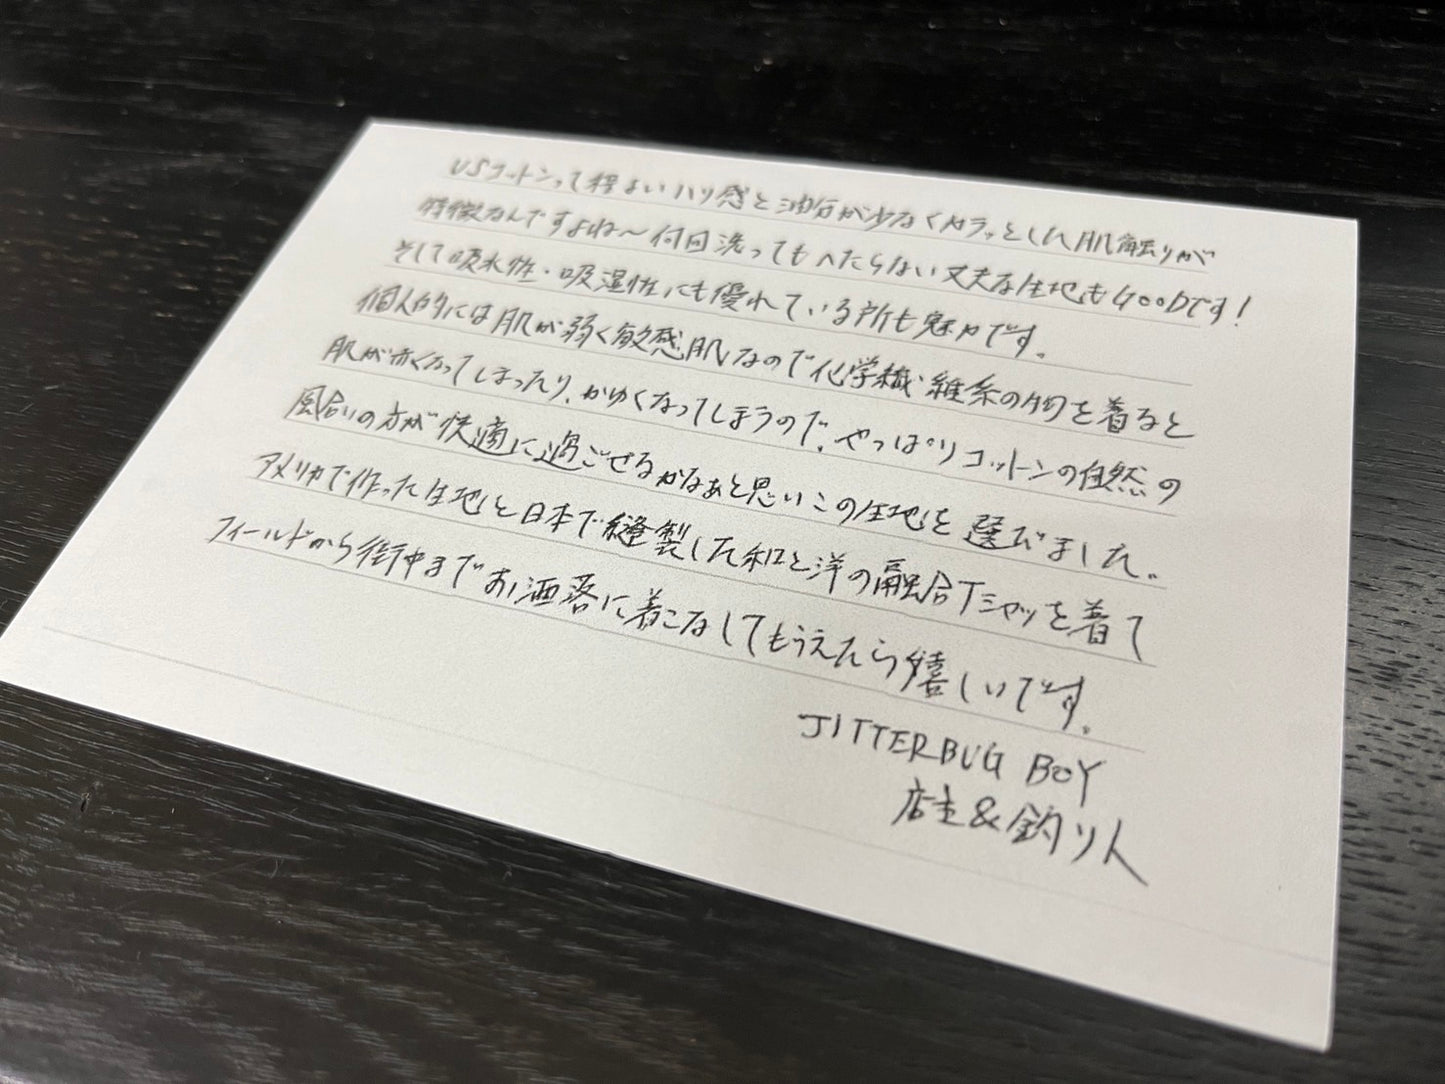 USコットンって程よいハリ感と油分が少なくカラッとした肌触りが
特徴なんですよね〜何回洗ってもへたらない丈夫な生地もGOODです!
そして吸水性・吸湿性にも優れている所も魅力です。
個人的には肌が弱く敏感肌なので化学繊維系の物を着ると
肌が赤くなってしまったり、かゆくなってしまうので、やっぱりコットンの自然の
風合いの方が快適に過ごせるかなぁと思いこの生地を選びました。
アメリカで作った生地と日本で縫製した和と洋の融合Tシャツを着て
フィールドから街中までお洒落に着こなしてもらえたら嬉しいです。
JITTERBUG BOY
店主&釣り人